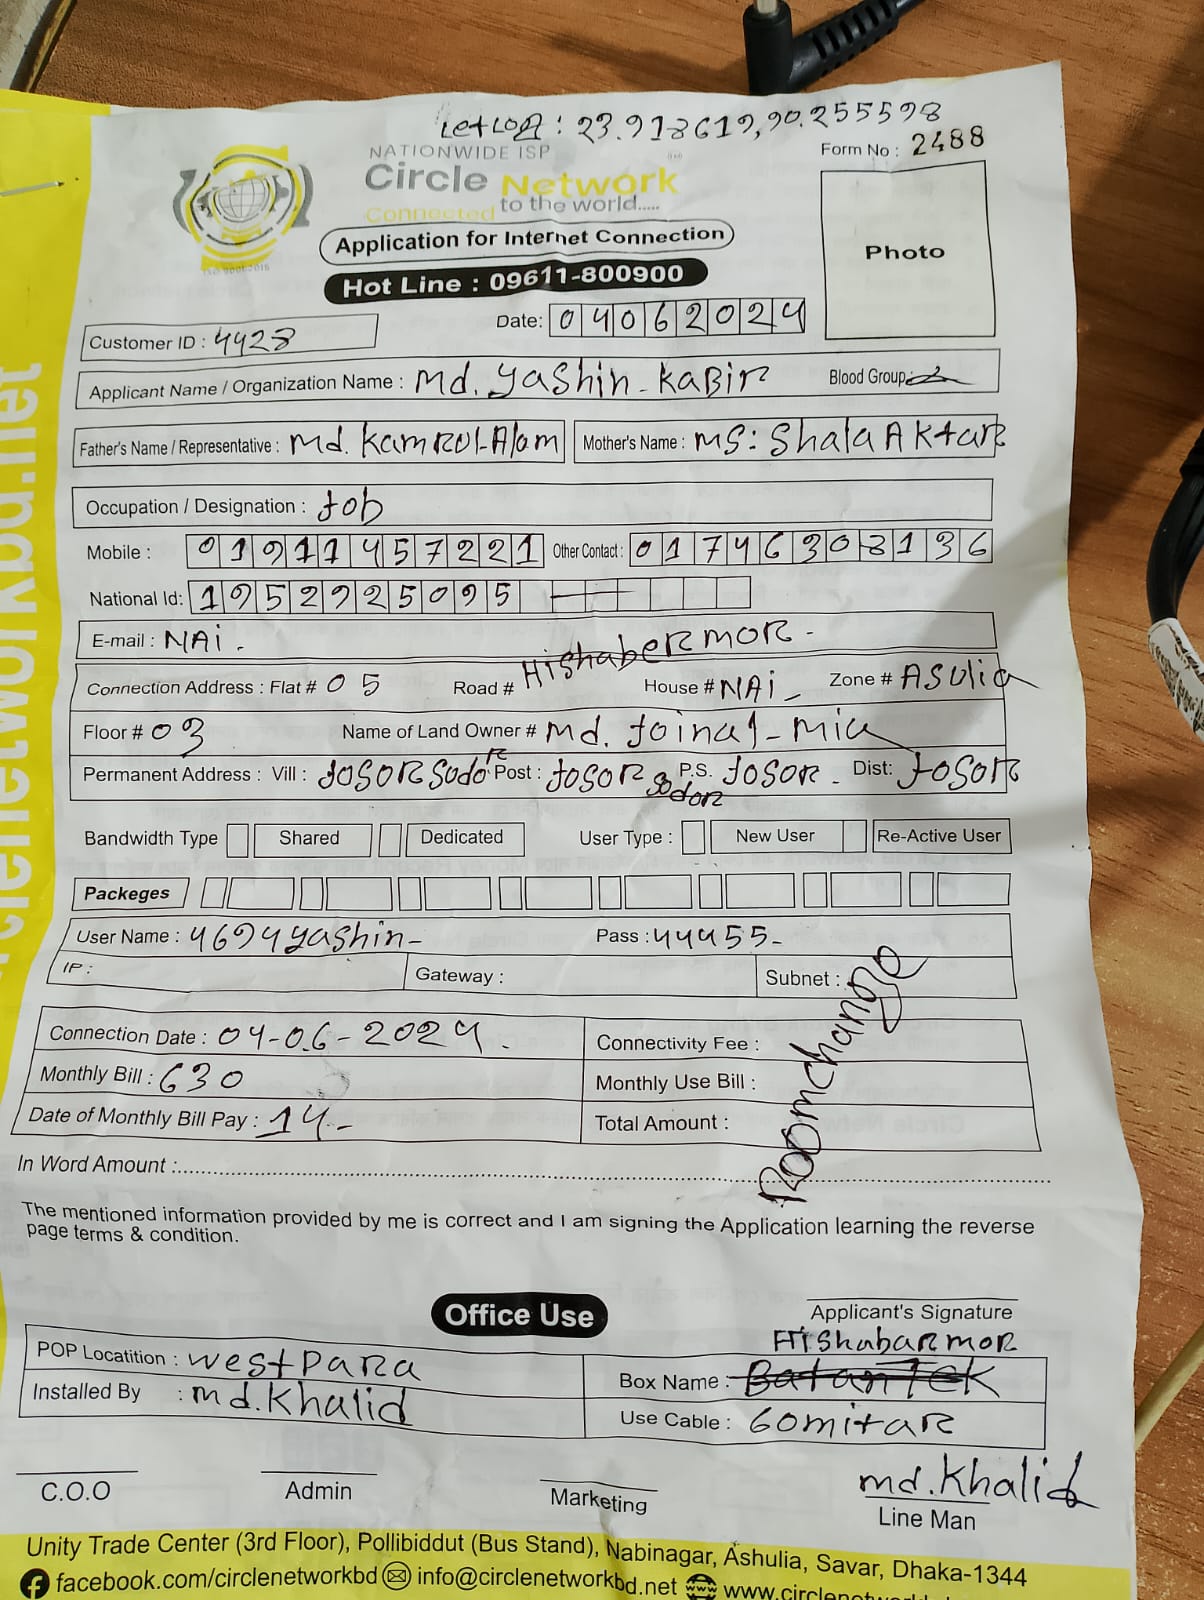 LetLon: 23.918619,90.255598
NATIONWIDE ISP
Form No: 2488
Circle Network
Connected to the world.....
Application for Internet Connection
Hot Line : 09611-800900
Photo
Date: 04062024
Customer ID : 4428
Applicant Name / Organization Name : Md. Yashin-KaBir Blood Group:
Father's Name / Representative : Md. Kamrul-Alam Mother's Name : MS: Shala Aktar
Occupation / Designation : Job
Mobile : 01911457221 Other Contact : 01746308136
National Id: 1952925095
E-mail : NAi.
Connection Address : Flat # 05 Road # Hishaber mor - House # NAi - Zone # ASulia
Floor # 03 Name of Land Owner # Md. Joinal-Mia
Permanent Address : Vill : JOSOR Sodor Post : JOSOR Sodor P.S. JOSOR - Dist: JOSOR
Bandwidth Type Shared Dedicated User Type : New User Re-Active User
Packeges
User Name : 4694yashin- Pass : 44455-
IP : Gateway : Subnet :
Room change
Connection Date : 04-06-2024. Connectivity Fee :
Monthly Bill : 630 Monthly Use Bill :
Date of Monthly Bill Pay : 14- Total Amount :
In Word Amount :
The mentioned information provided by me is correct and I am signing the Application learning the reverse
page terms & condition.
Office Use
Applicant's Signature
Hishabar mor
POP Locatition : West Para Box Name : BatanTek
Installed By : Md. Khalid Use Cable : 60 mitar
C.O.O Admin Marketing
md. Khalid
Line Man
Unity Trade Center (3rd Floor), Pollibiddut (Bus Stand), Nabinagar, Ashulia, Savar, Dhaka-1344
facebook.com/circlenetworkbd info@circlenetworkbd.net www.circlenetwork